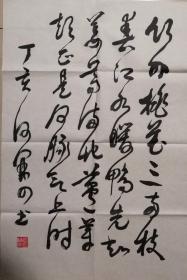 竹外桃花三两枝
春江水暖鸭先知
蒌蒿满地芦芽
短正是河豚欲上时
丁亥 书